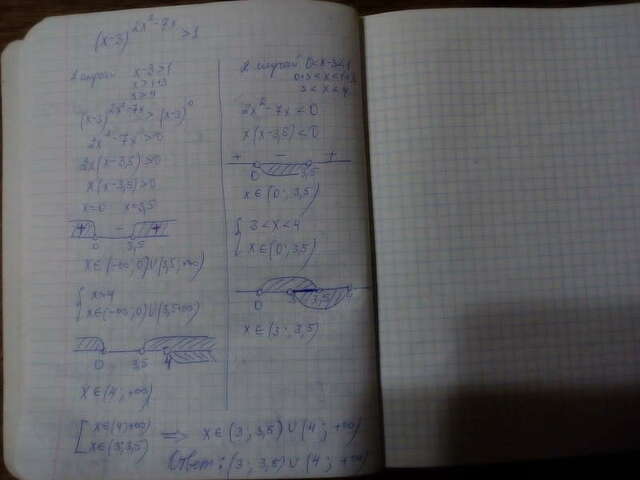 (x-3)^{2x²-7x} > 1
1 случай x-3>1
x>1+3
x>4
(x-3)^{2x²-7x} > (x-3)^0
2x²-7x>0
2x(x-3,5)>0
x(x-3,5)>0
x=0 x=3,5
+ - +
0 3,5
x∈(-∞; 0)∪(3,5; +∞)
{ x>4
x∈(-∞; 0)∪(3,5; +∞)
0 3,5 4
x∈(4; +∞)
2 случай 0<x-3<1
0+3<x<1+3
3<x<4
2x²-7x<0
x(x-3,5)<0
+ - +
0 3,5
x∈(0; 3,5)
{ 3<x<4
x∈(0; 3,5)
0 3 3,5
x∈(3; 3,5)
[ x∈(4; +∞)
x∈(3; 3,5) ⇒ x∈(3; 3,5)∪(4; +∞)
Ответ: (3; 3,5)∪(4; +∞)